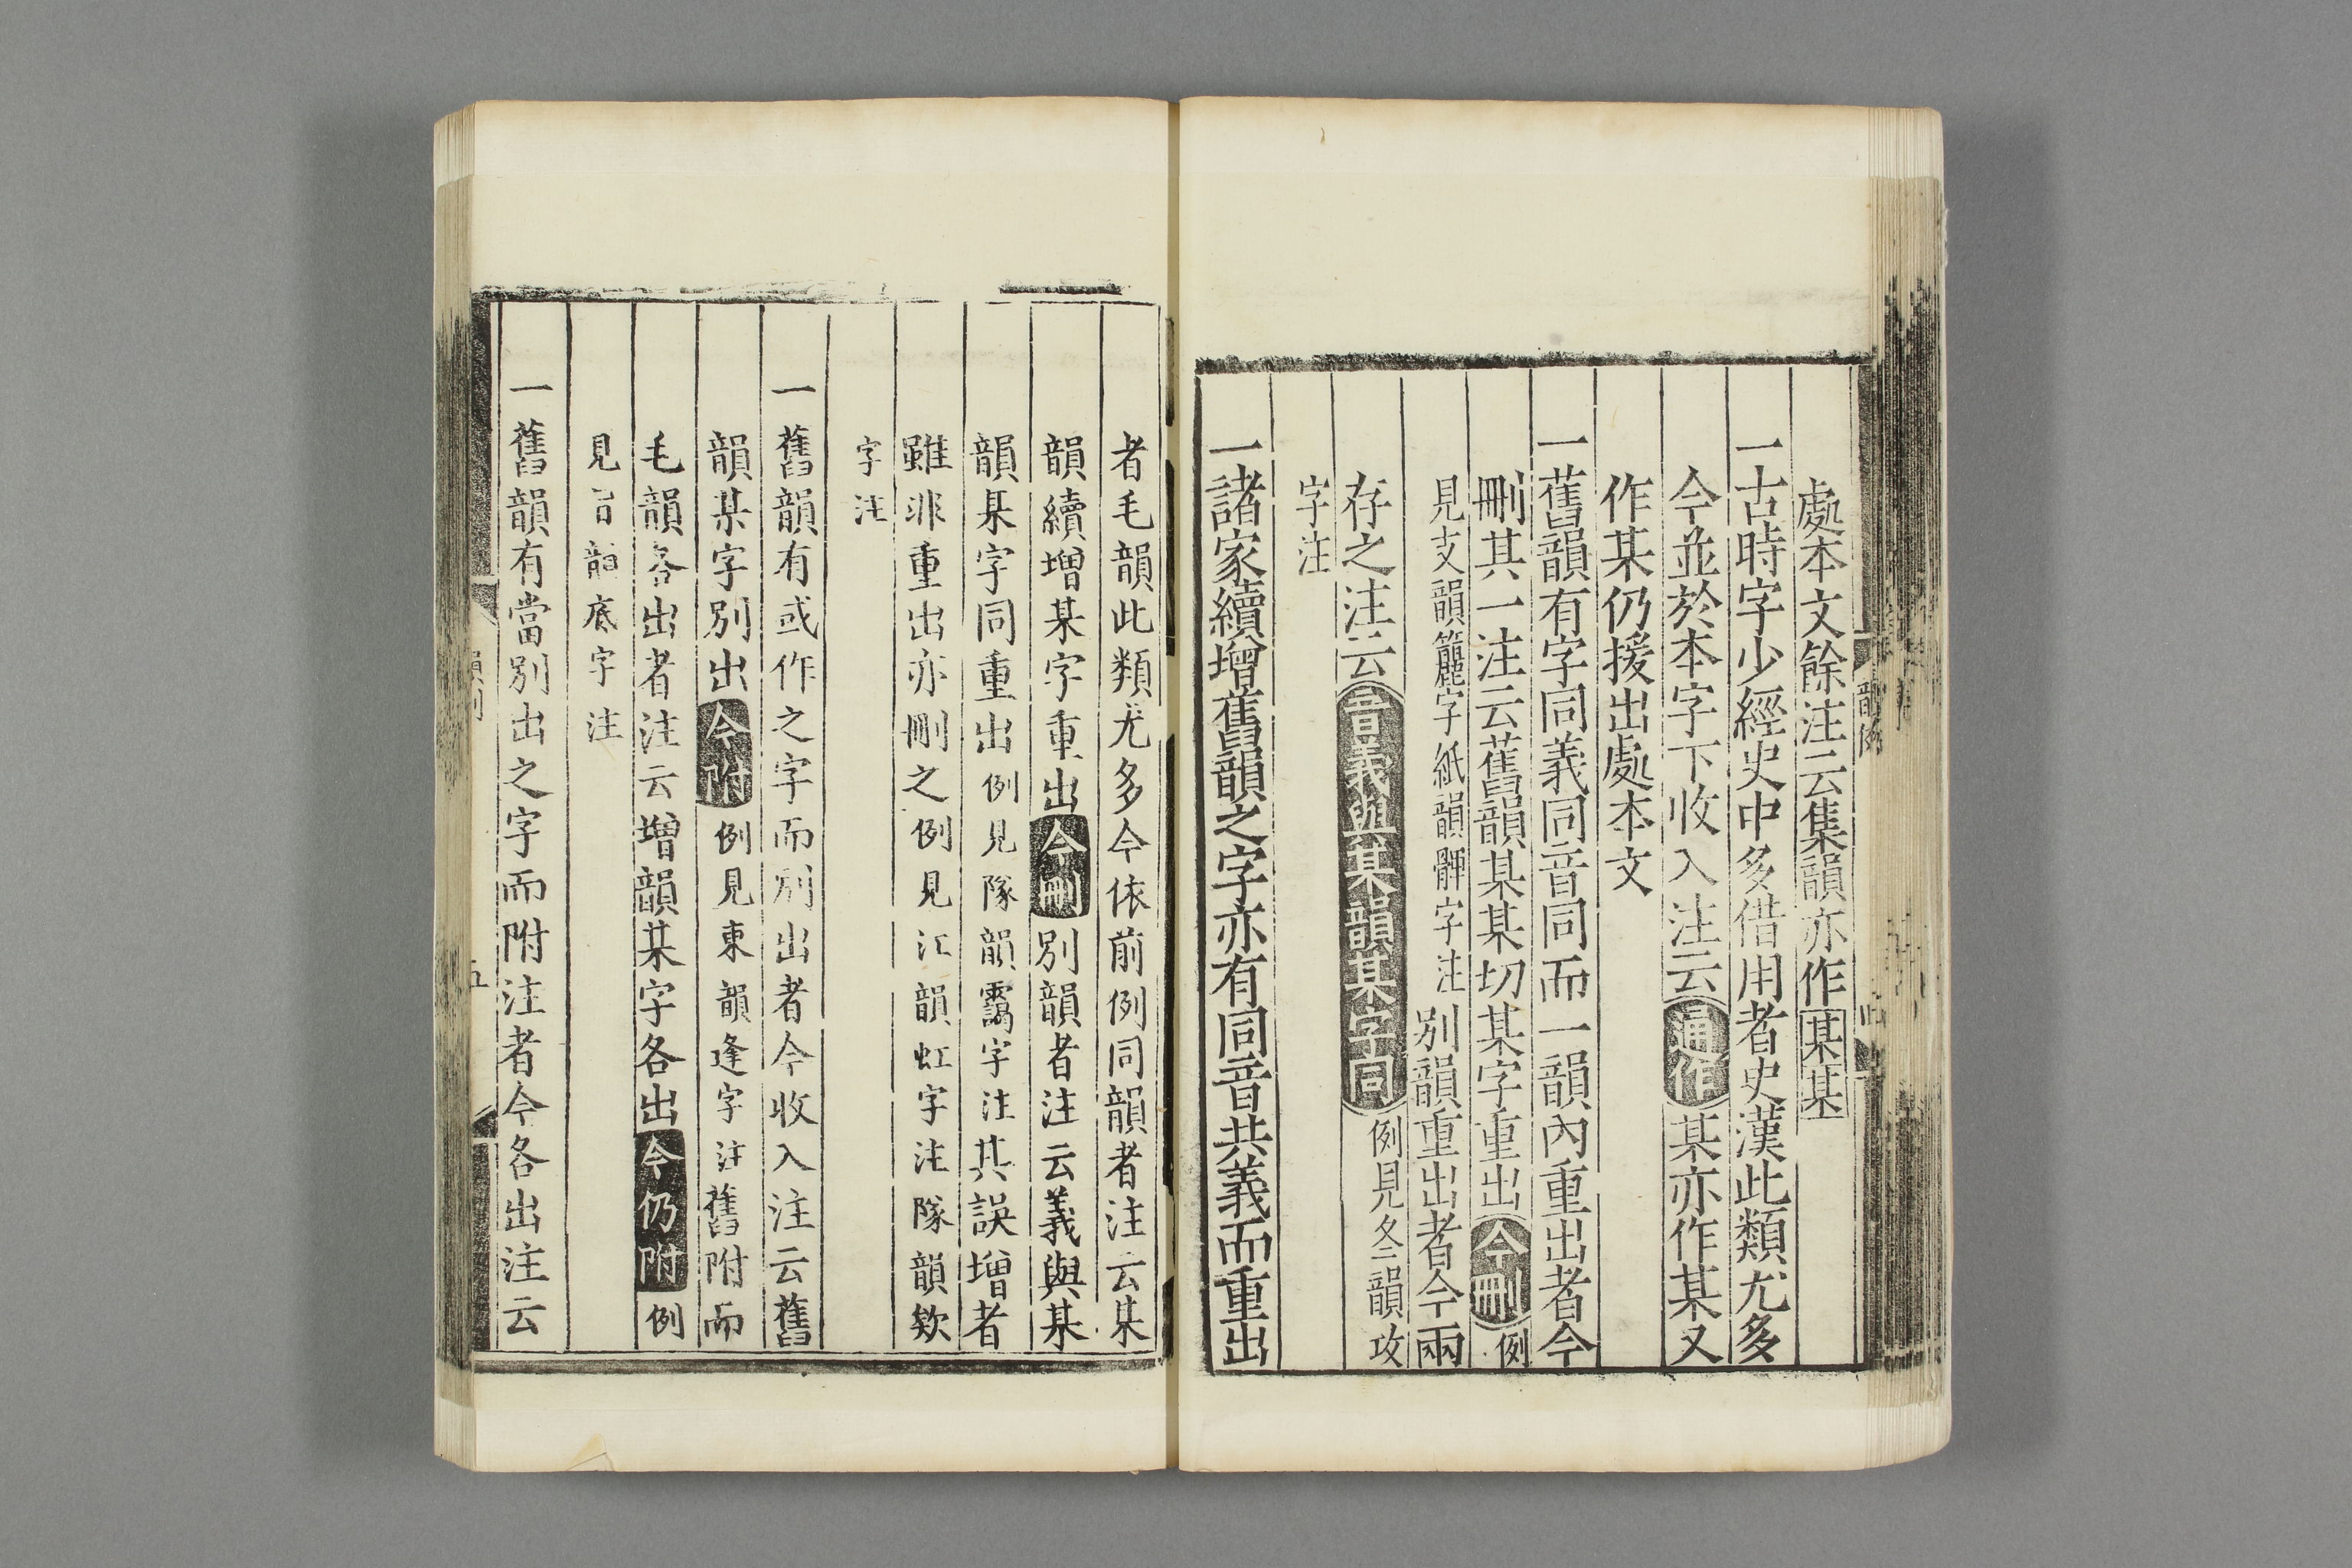 處本文餘注云集韻亦作某某
一古時字少經史中多借用者史漢此類尤多
今並於本字下收入注云通作某亦作某又
作某仍援出處本文
一舊韻有字同義同音同而一韻內重出者今
刪其一注云舊韻某某切某字重出今刪例
見支韻籭字紙韻髀字注別韻重出者今兩
存之注云音義與某韻某字同例見冬韻攻
字注
一諸家續增舊韻之字亦有同音共義而重出
者毛韻此類尤多今依前例同韻者注云某
韻續增某字重出今刪別韻者注云義與某
韻某字同重出例見隊韻霭字注其誤增者
雖非重出亦刪之例見江韻虹字注隊韻欸
字注
一舊韻有或作之字而別出者今收入注云舊
韻某字別出今附例見東韻逢字注舊附而
毛韻各出者注云增韻某字各出今仍附例
見旨韻底字注
一舊韻有當別出之字而附注者今各出注云
韻例
五